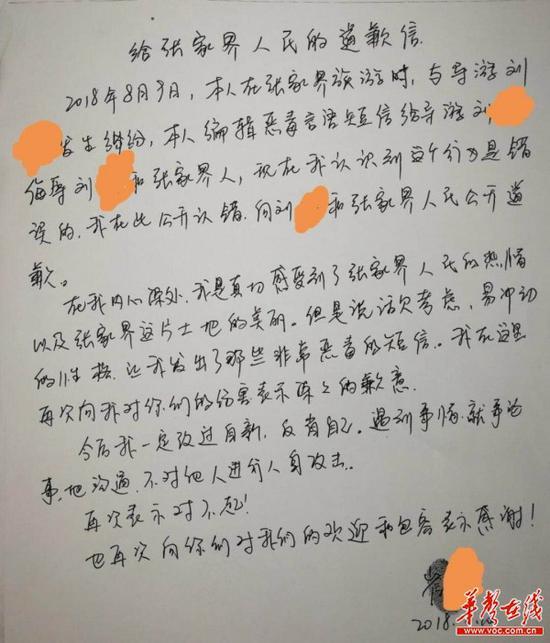 给张家界人民的道歉信
2018年8月9日，本人在张家界旅游时，与导游刘
发生纠纷，本人编辑恶毒言语短信给导游刘
侮辱刘 和张家界人，现在我认识到这个行为是错
误的，我在此公开认错，向刘 和张家界人民公开道
歉。
在我内心深处，我是真切感受到了张家界人民的热情
以及张家界这片土地的美丽。但是说话欠考虑，易冲动
的性格，让我发出了那些非常恶毒的短信。我在这里
再次向我对你们的伤害表示深深的歉意。
今后我一定改过自新，反省自己。遇到事情就事论
事地沟通，不对他人进行人身攻击。
再次表示对不起！
也再次向你们对我们的欢迎和包容表示感谢！
2018.
华声在线
www.voc.com.cn